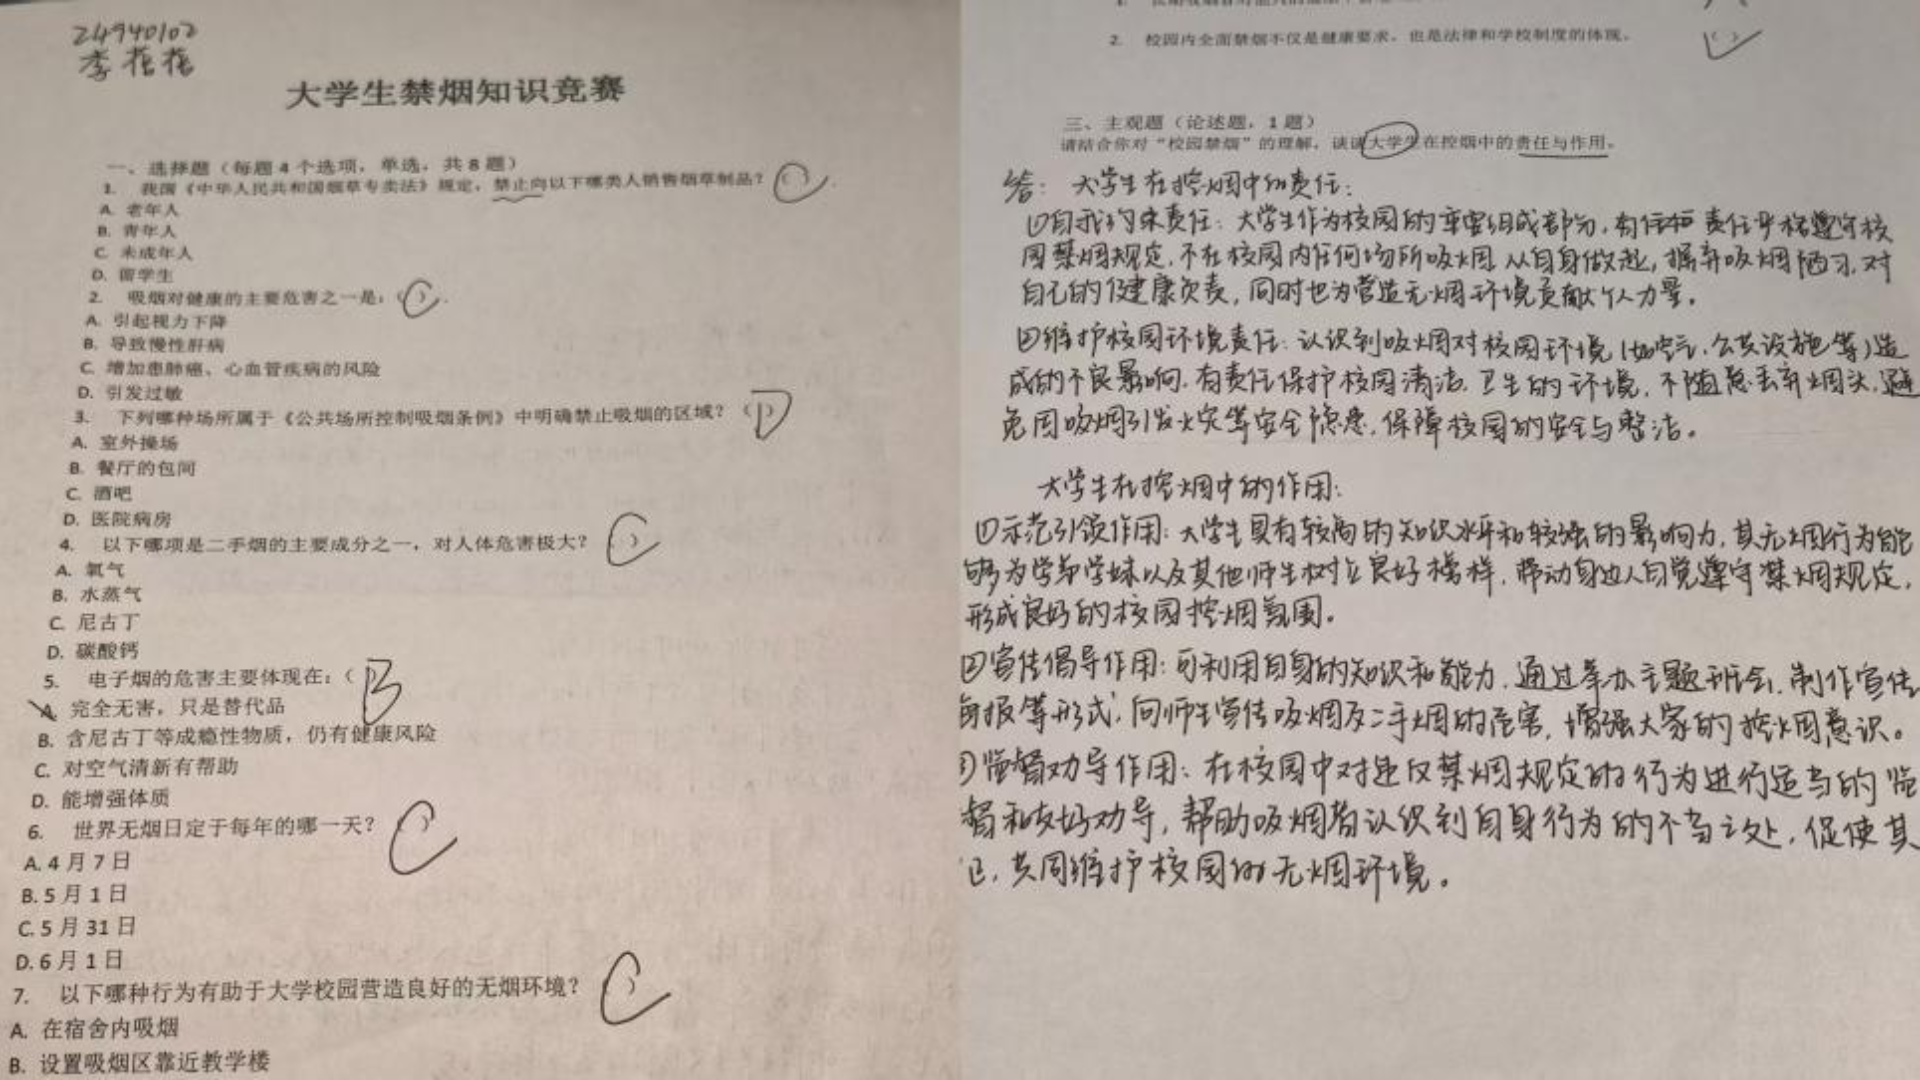 24940102
李花花
大学生禁烟知识竞赛
一、选择题（每题 4 个选项，单选，共 8 题）
1. 我国《中华人民共和国烟草专卖法》规定，禁止向以下哪类人销售烟草制品？（C）
A. 老年人
B. 青年人
C. 未成年人
D. 留学生
2. 吸烟对健康的主要危害之一是：（C）
A. 引起视力下降
B. 导致慢性肝病
C. 增加患肺癌、心血管疾病的风险
D. 引发过敏
3. 下列哪种场所属于《公共场所控制吸烟条例》中明确禁止吸烟的区域？（D）
A. 室外操场
B. 餐厅的包间
C. 酒吧
D. 医院病房
4. 以下哪项是二手烟的主要成分之一，对人体危害极大？（C）
A. 氧气
B. 水蒸气
C. 尼古丁
D. 碳酸钙
5. 电子烟的危害主要体现在：（B）
A. 完全无害，只是替代品
B. 含尼古丁等成瘾性物质，仍有健康风险
C. 对空气清新有帮助
D. 能增强体质
6. 世界无烟日定于每年的哪一天？（C）
A. 4 月 7 日
B. 5 月 1 日
C. 5 月 31 日
D. 6 月 1 日
7. 以下哪种行为有助于大学校园营造良好的无烟环境？（C）
A. 在宿舍内吸烟
B. 设置吸烟区靠近教学楼
2. 校园内全面禁烟不仅是健康要求，也是法律和学校制度的体现。（✓）
三、主观题（论述题，1 题）
请结合你对“校园禁烟”的理解，谈谈大学生在控烟中的责任与作用。
答：大学生在控烟中的责任：
①自我约束责任：大学生作为校园的重要组成部分，有责任严格遵守校
园禁烟规定，不在校园内任何场所吸烟，从自身做起，摒弃吸烟陋习，对
自己的健康负责，同时也为营造无烟环境贡献个人力量。
②维护校园环境责任：认识到吸烟对校园环境（如空气、公共设施等）造
成的不良影响，有责任保护校园清洁、卫生的环境，不随意丢弃烟头，避
免因吸烟引发火灾等安全隐患，保障校园的安全与整洁。
大学生在控烟中的作用：
①示范引领作用：大学生具有较高的知识水平和较强的影响力，其无烟行为能
够为学弟学妹以及其他师生树立良好榜样，带动身边人自觉遵守禁烟规定，
形成良好的校园控烟氛围。
②宣传倡导作用：可利用自身的知识和能力，通过举办主题班会、制作宣传
海报等形式，向师生宣传吸烟及二手烟的危害，增强大家的控烟意识。
③监督劝导作用：在校园中对违反禁烟规定的行为进行适当的监
督和友好劝导，帮助吸烟者认识到自身行为的不当之处，促使其
正，共同维护校园的无烟环境。